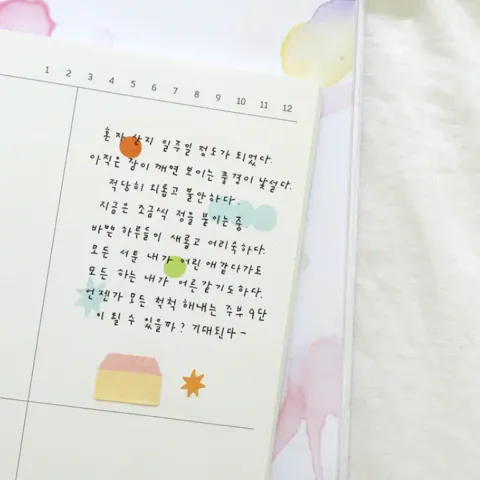 1 2 3 4 5 6 7 8 9 10 11 12
혼자 산지 일주일 정도가 되었다.
아직은 잠이 깨면 보이는 풍경이 낯설다.
적당히 외롭고 불안하다.
지금은 조금씩 정을 붙이는 중.
바쁜 하루들이 새롭고 어리숙하다.
모든 서툰 내가 어린 애같다가도
모든 하는 내가 어른같기도하다.
언젠가 모든 척척 해내는 주부 9단
이 될 수 있을까? 기대된다-